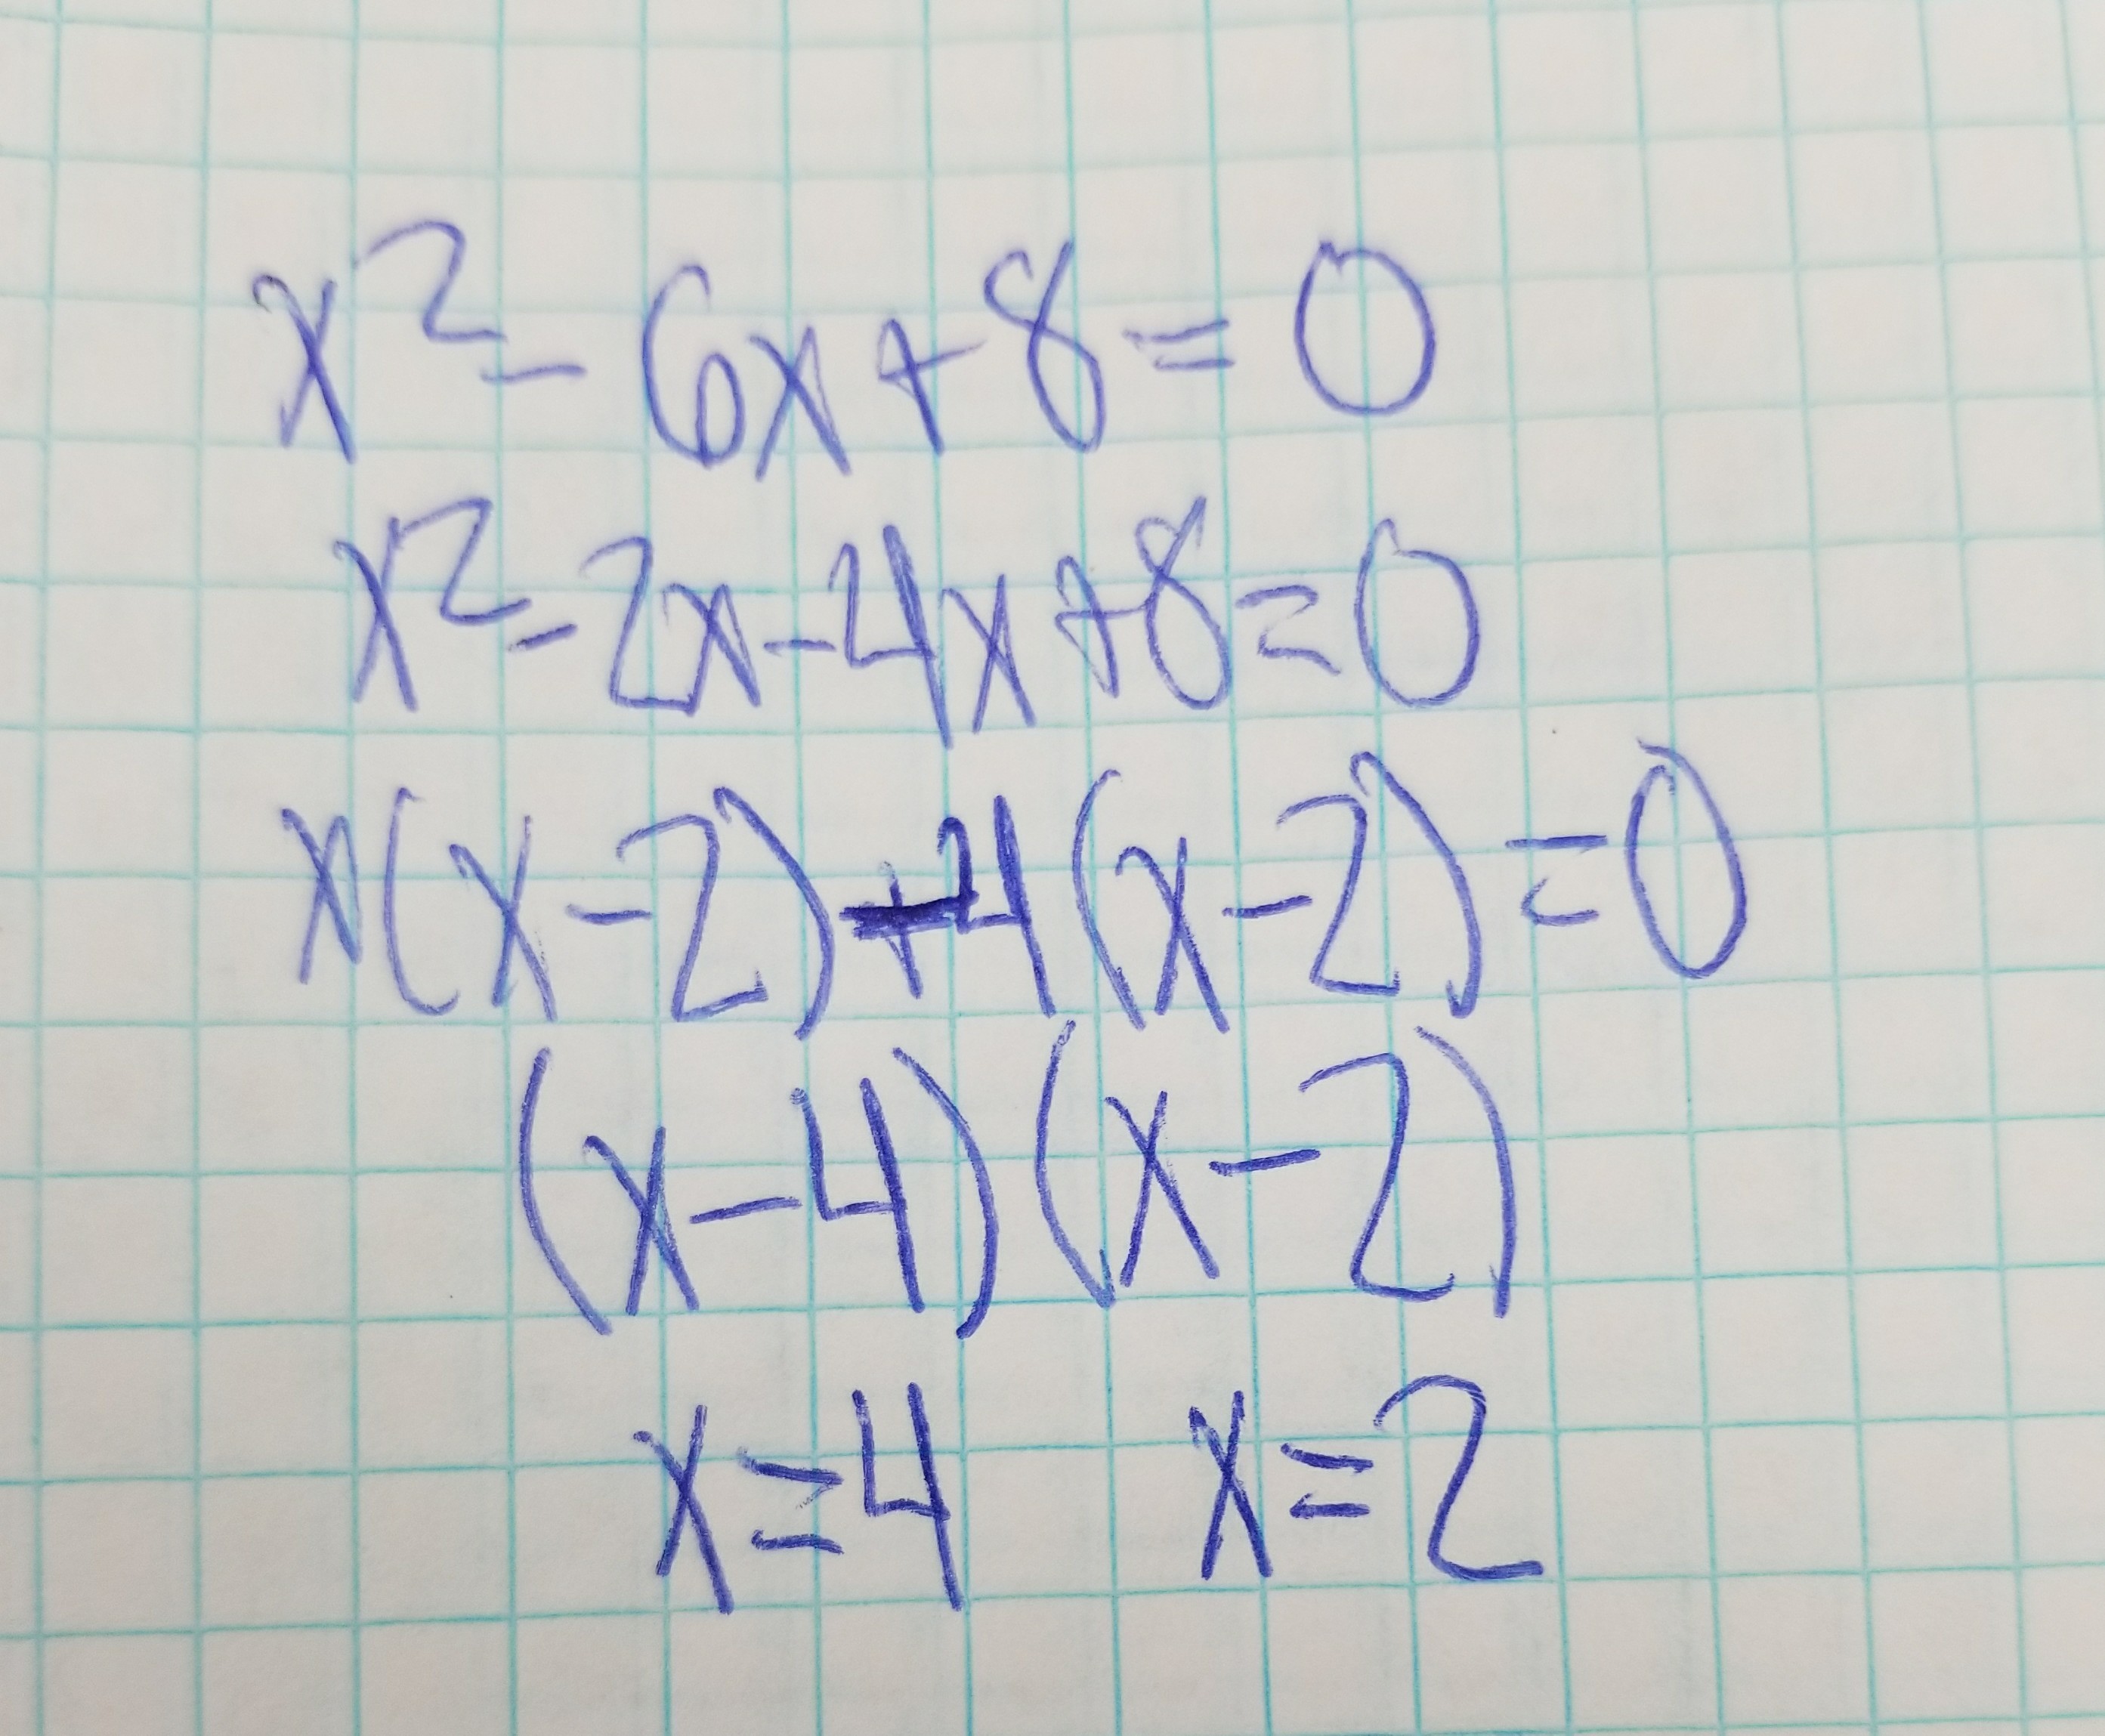 x² - 6x + 8 = 0
x² - 2x - 4x + 8 = 0
x(x - 2) - 4(x - 2) = 0
(x - 4)(x - 2)
x = 4 x = 2